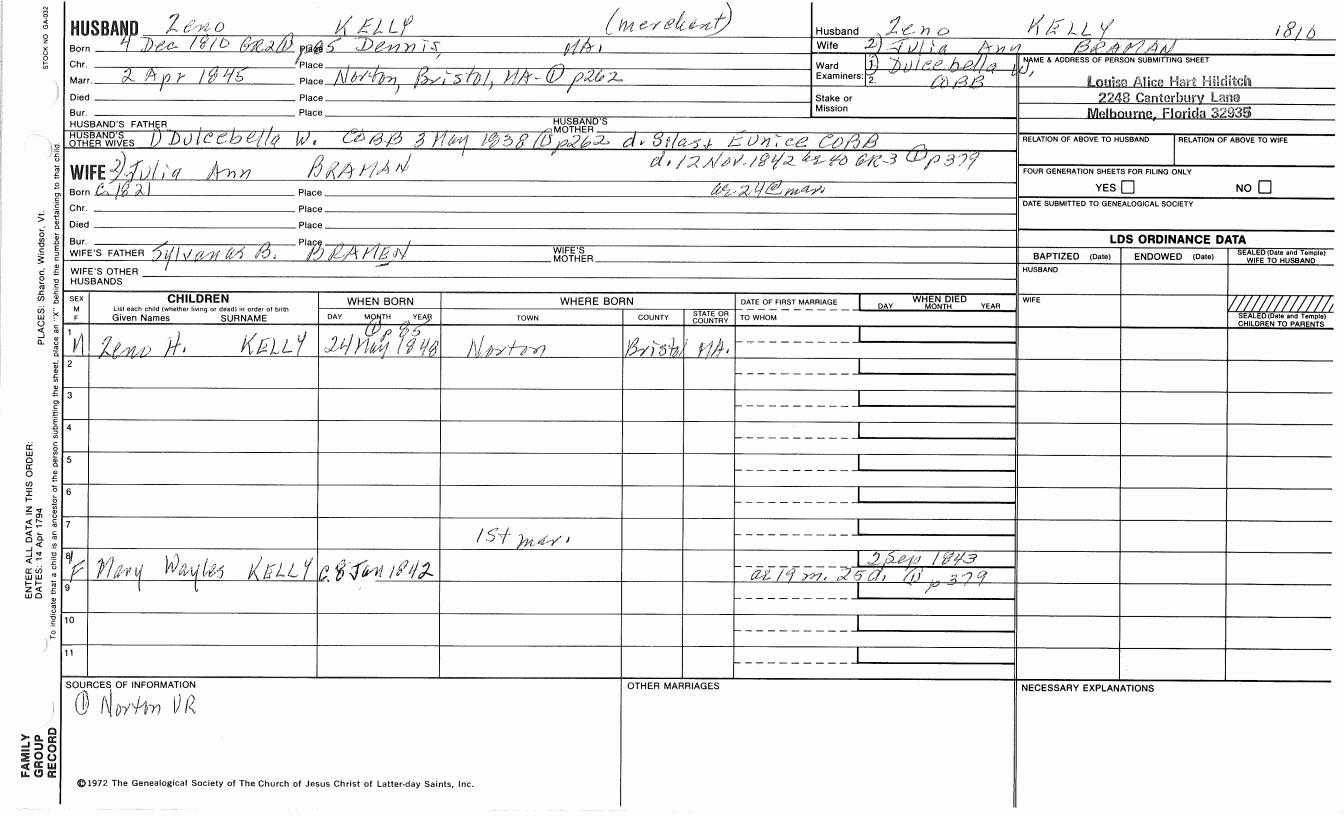 STOCK NO GA-032
HUSBAND Zeno KELLY (merchant)
Born 4 Dec 1810 GR2 ① p85 Place Dennis, MA.
Chr. Place
Marr. 2 Apr 1845 Place Norton, Bristol, MA - ① p262
Died Place
Bur. Place
HUSBAND'S FATHER HUSBAND'S MOTHER
HUSBAND'S OTHER WIVES 1) Dulcebella W. COBB 3 May 1838 ① p262 d. Silas & Eunice COBB
d. 12 Nov. 1842 ae 40 GR-3 ① p379
WIFE 2) Julia Ann BRAMAN
Born C. 1821 Place ae. 24 @ mar
Chr. Place
Died Place
Bur. Place
WIFE'S FATHER Sylvanus B. BRAMEN WIFE'S MOTHER
WIFE'S OTHER HUSBANDS
Husband Zeno KELLY 1810
Wife 2) Julia Ann BRAMAN
1) Dulcebella W. COBB
Ward Examiners: 1. 2.
Stake or Mission
NAME & ADDRESS OF PERSON SUBMITTING SHEET
Louise Alice Hart Hilditch
2248 Canterbury Lane
Melbourne, Florida 32935
RELATION OF ABOVE TO HUSBAND RELATION OF ABOVE TO WIFE
FOUR GENERATION SHEETS FOR FILING ONLY
YES NO
DATE SUBMITTED TO GENEALOGICAL SOCIETY
LDS ORDINANCE DATA
BAPTIZED (Date) ENDOWED (Date) SEALED (Date and Temple) WIFE TO HUSBAND
HUSBAND
WIFE
SEALED (Date and Temple) CHILDREN TO PARENTS
SEX M F CHILDREN
List each child (whether living or dead) in order of birth
Given Names SURNAME
WHEN BORN
DAY MONTH YEAR
WHERE BORN
TOWN COUNTY STATE OR COUNTRY
DATE OF FIRST MARRIAGE
TO WHOM
WHEN DIED
DAY MONTH YEAR
① p 85
1 M Zeno H. KELLY 24 May 1848 Norton Bristol MA.
2
3
4
5
6
7
1st mar.
8 F Mary Wayles KELLY C. 8 Jan 1842 2 Sep 1843
ae 19 m. 25 d. ① p 379
9
10
11
SOURCES OF INFORMATION
① Norton VR
OTHER MARRIAGES
NECESSARY EXPLANATIONS
©1972 The Genealogical Society of The Church of Jesus Christ of Latter-day Saints, Inc.
FAMILY GROUP RECORD
ENTER ALL DATA IN THIS ORDER:
DATES: 14 Apr 1794 PLACES: Sharon, Windsor, Vt.
To indicate that a child is an ancestor of the person submitting the sheet, place an "X" behind the number pertaining to that child